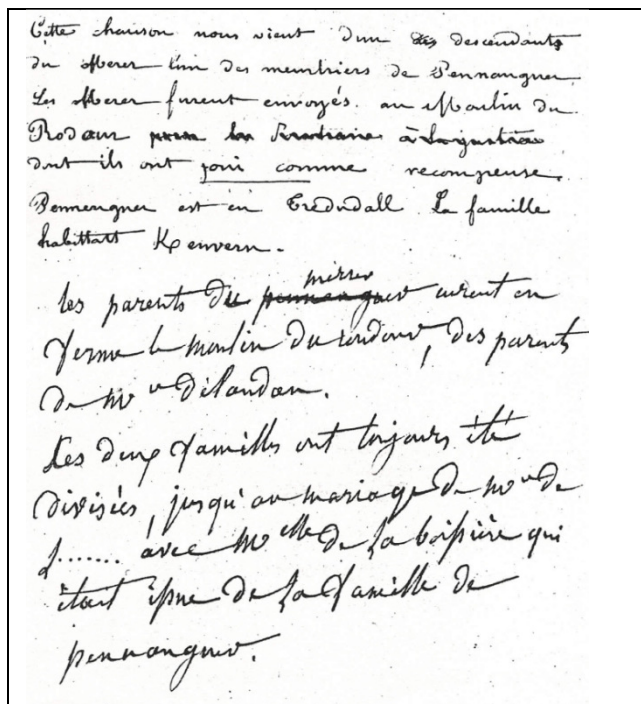 Cette chanson nous vient d'un des descendants
du Merer l'un des meurtriers de Pennanguer.
Les Merer furent envoyés au Moulin du
Rodour pour la à Langustin
dont ils ont joui comme recompense.
Pennenguer est en Treduda ll La famille
habittait Kenvern.
les parents du merrer eurent en
ferme le moulin du roudour, des parents
de mr dilandan.
Les deux familles ont toujours été
divisées, jusqu'au mariage de mr de
L....... avec melle de la boissière qui
était issue de la famille de
pennanguer.